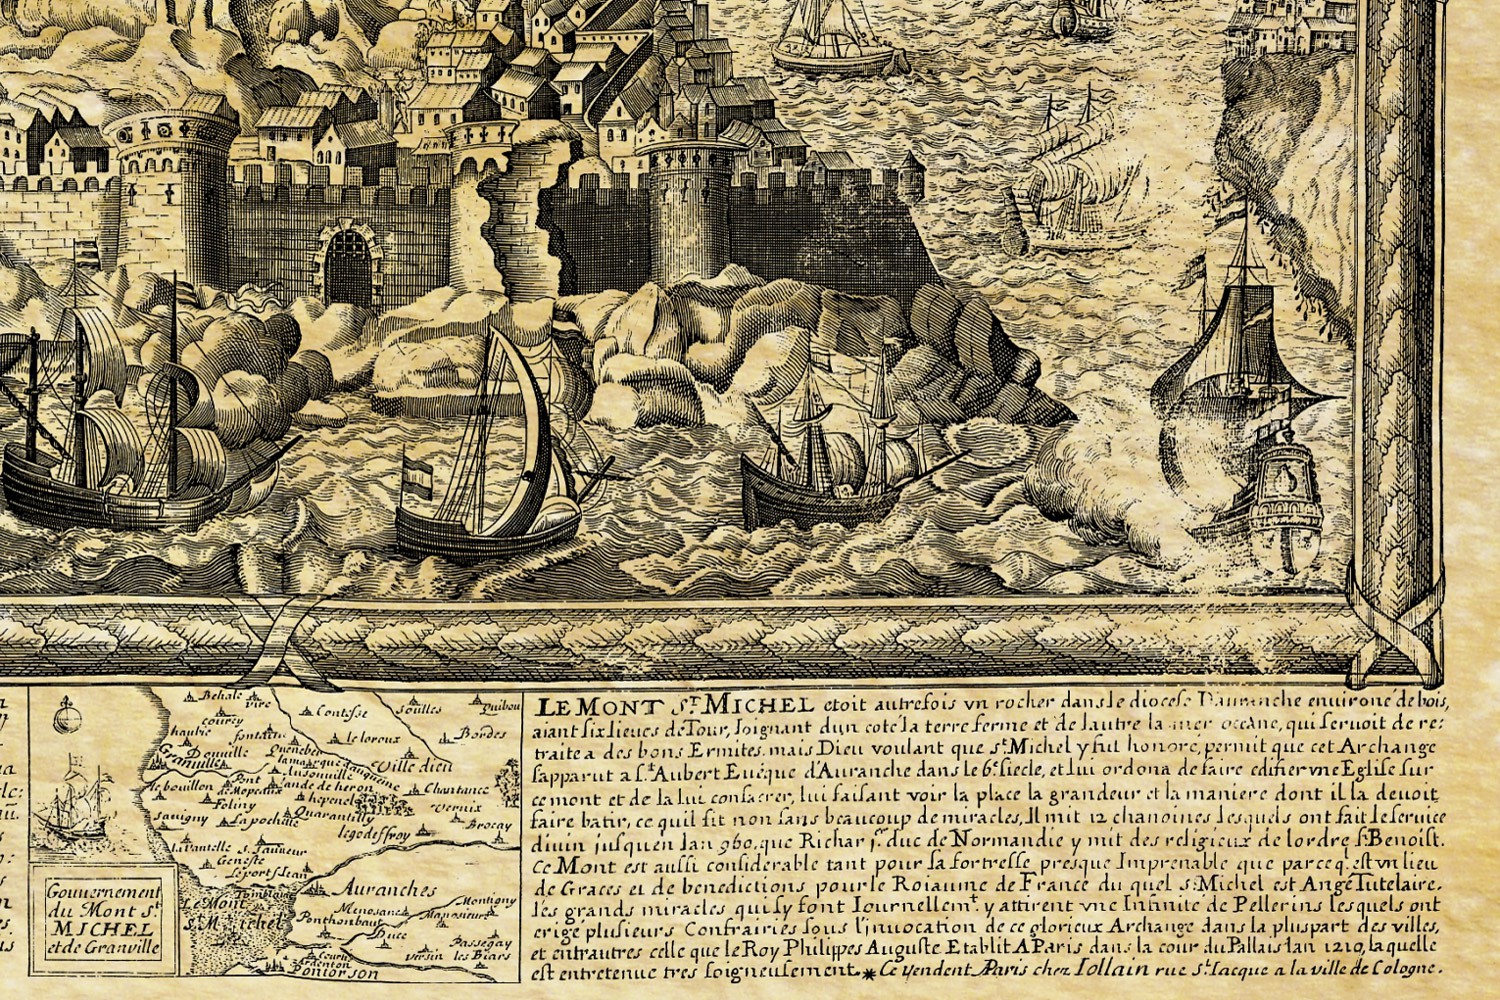 LE MONT S.T MICHEL etoit autrefois vn rocher dans le diocese D'auranche environé de bois,
aiant six lieues de Tour, Joignant d'un coté la terre ferme et de lautre la mer oceane, qui servoit de re:
traite a des bons Ermites. mais Dieu voulant que s.t Michel y fut honoré, permit que cet Archange
sapparut a s.t Aubert Eueque d'Auranche dans le 6.e siecle, et lui ordona de faire edifier vne Eglise sur
ce mont et de la lui consacrer, lui faisant voir la place la grandeur et la maniere dont il la devoit
faire batir, ce quil fit non sans beaucoup de miracles, Il mit 12 chanoines lesquels ont fait le service
divin jusqu'en lan 960, que Richar j.r duc de Normandie y mit des religieux de lordre s.t Benoist.
Ce Mont est aussi considerable tant pour sa fortresse presque Imprenable que parce q'. est vn lieu
de Graces et de benedictions pour le Roiaume de France du quel s.t Michel est Ange Tutelaire.
les grands miracles qui sy font Iournellem.t y attirent vne Infinité de Pellerins lesquels ont
erigé plusieurs Confrairies sous l'invocation de ce glorieux Archange dans la pluspart des villes,
et entrautres celle que le Roy Philippes Auguste Etablit A Paris dans la cour du Pallais lan 1210, la quelle
est entretenue tres soigneusement. * Ce vendent A Paris chez Iollain rue S.t Iacque a la ville de Cologne.
Gouvernement
du Mont S.t
MICHEL
et de Granville
Behale
Vire
courcy
Contesse
soulles
Quibou
haulte
fontaine
le loreux
Bordes
Granville
Donuille
Quenebec
Ville dieu
Pont
Ausonuille
lande de heron
Chantance
le bouillon
Foliny
hepenel
vernix
savigny
La pochelle
Quarantilly
Brocay
legodeffroy
s. Jauueur
Geneste
Auranches
Le Mont
S. Michel
Montigny
Menosane
Ponthonbaut
Duce
Passegay
versin
les Biars
Pontorson